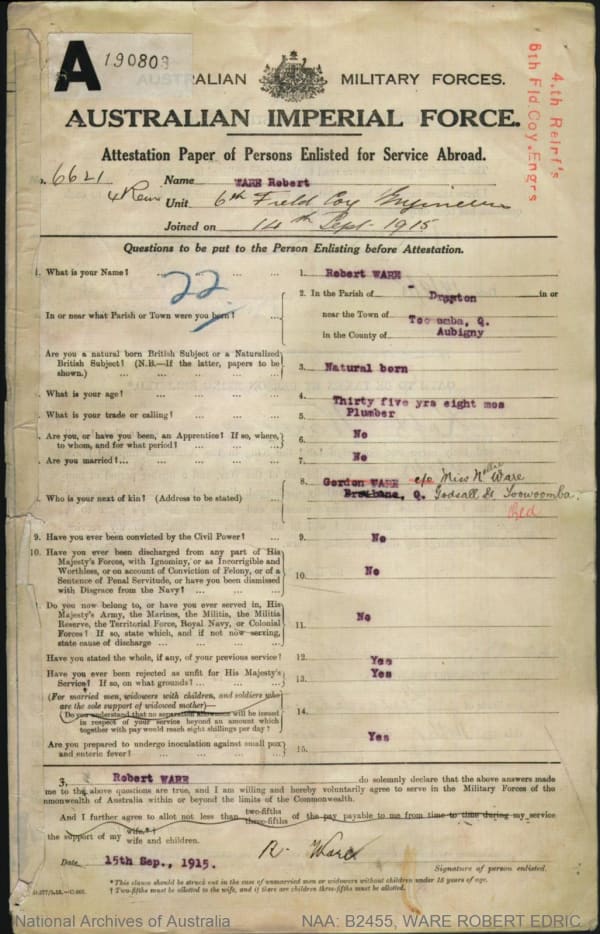 A 190803
AUSTRALIAN MILITARY FORCES.
AUSTRALIAN IMPERIAL FORCE.
4.th Reinf's
6th Fld Coy. Engrs
Attestation Paper of Persons Enlisted for Service Abroad.
o. 6621 Name WARE Robert
4 Rein Unit 6th Field Coy Engineers
Joined on 14th Sept 1915
Questions to be put to the Person Enlisting before Attestation.
1. What is your Name? ... ... ... 1. Robert WARE
22
In or near what Parish or Town were you born? ... 2. In the Parish of Drayton in or
near the Town of Too omba, Q.
in the County of Aubigny
Are you a natural born British Subject or a Naturalized
British Subject? (N.B.—If the latter, papers to be
shown.) ... ... ... ... 3. Natural born
What is your age? ... ... ... ... 4. Thirty five yrs eight mos
What is your trade or calling? ... ... ... 5. Plumber
Are you, or have you been, an Apprentice? If so, where,
to whom, and for what period? ... ... ... 6. No
Are you married?... ... ... ... 7. No
8. Gordon WARE c/o Miss Nellie Ware
Who is your next of kin? (Address to be stated) ... Brisbane, Q. Godsall St Toowoomba.
Qld
9. Have you ever been convicted by the Civil Power? ... 9. No
10. Have you ever been discharged from any part of His
Majesty's Forces, with Ignominy, or as Incorrigible and
Worthless, or on account of Conviction of Felony, or of a
Sentence of Penal Servitude, or have you been dismissed
with Disgrace from the Navy? ... ... ... 10. No
Do you now belong to, or have you ever served in, His
Majesty's Army, the Marines, the Militia, the Militia
Reserve, the Territorial Force, Royal Navy, or Colonial
Forces? If so, state which, and if not now serving,
state cause of discharge ... ... ... 11. No
Have you stated the whole, if any, of your previous service? 12. Yes
Have you ever been rejected as unfit for His Majesty's
Service? If so, on what grounds? ... ... ... 13. Yes
(For married men, widowers with children, and soldiers who
are the sole support of widowed mother)—
Do you understand that no separation allowance will be issued
in respect of your service beyond an amount which
together with pay would reach eight shillings per day? 14.
Are you prepared to undergo inoculation against small pox
and enteric fever? ... ... ... ... 15. Yes
3, Robert WARE do solemnly declare that the above answers made
me to the above questions are true, and I am willing and hereby voluntarily agree to serve in the Military Forces of the
mmonwealth of Australia within or beyond the limits of the Commonwealth.
And I further agree to allot not less than two-fifths three-fifths of the pay payable to me from time to time during my service
the support of my wife.*† wife and children.
Date 15th Sep., 1915. R. Ware
Signature of person enlisted.
* This clause should be struck out in the case of unmarried men or widowers without children under 18 years of age.
† Two-fifths must be allotted to the wife, and if there are children three-fifths must be allotted.
National Archives of Australia NAA: B2455, WARE ROBERT EDRIC